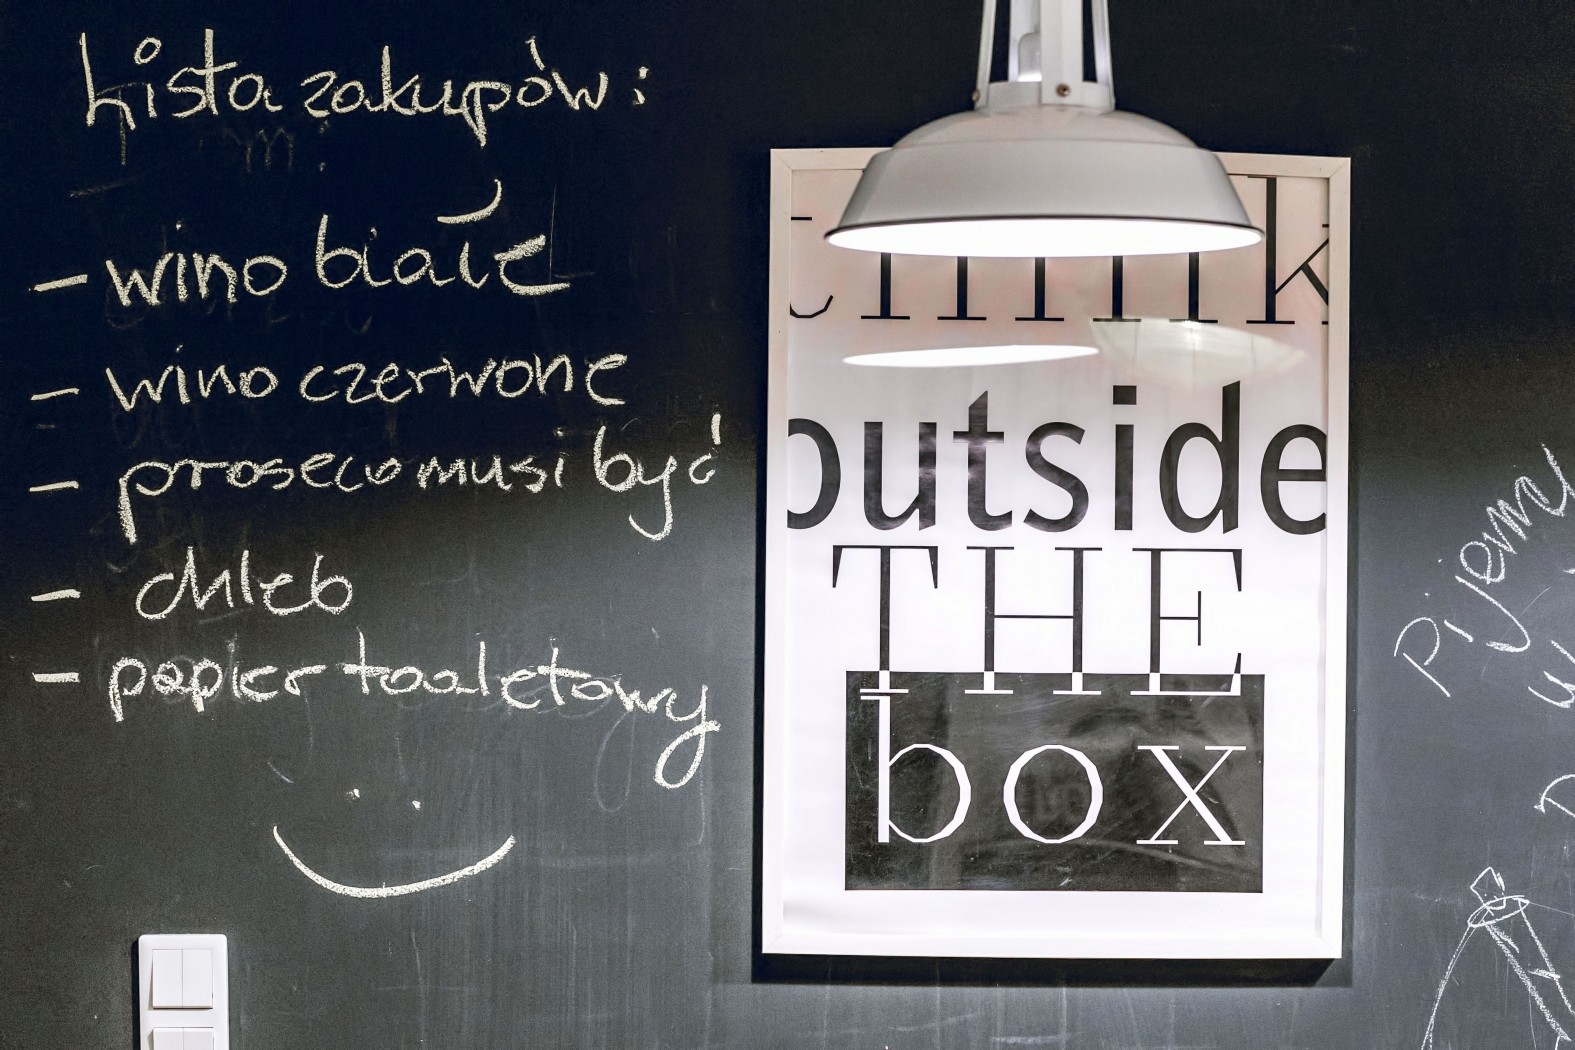 Lista zakupów:
- wino białe
- wino czerwone
- proseco musi być
- chleb
- papier toaletowy
think
outside
THE
box
Pijemy